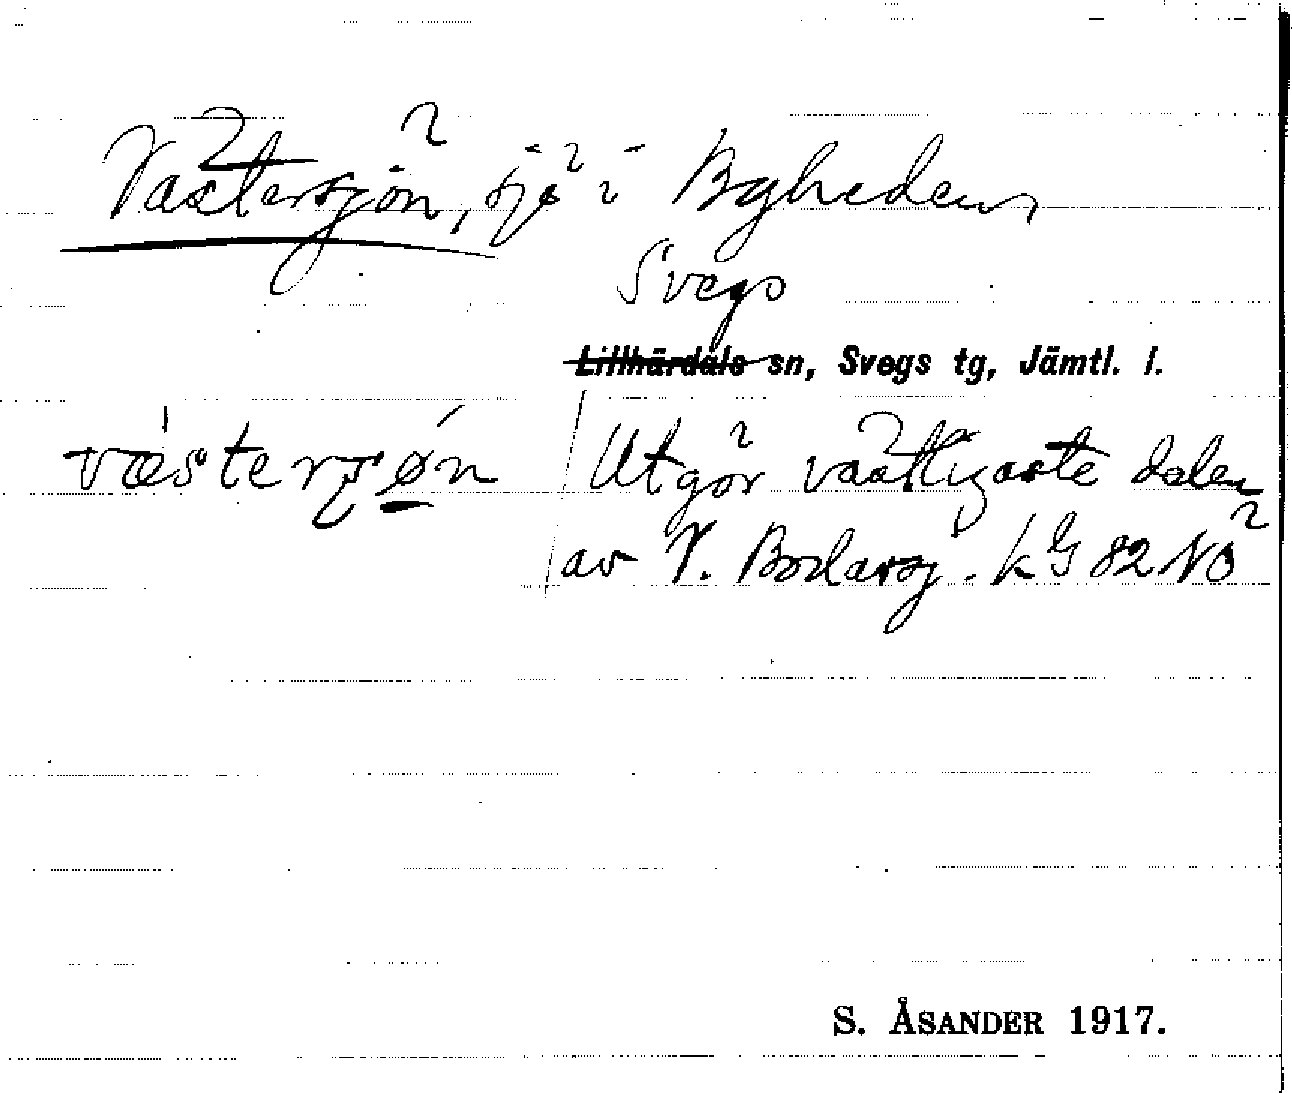 Västersjön, sjö i Bygheden,
Svegs
Lillhärdals sn, Svegs tg, Jämtl. l.
västerʂøn Utgör västligaste delen
av V. Bodarsj. kG 82 NO
S. ÅSANDER 1917.